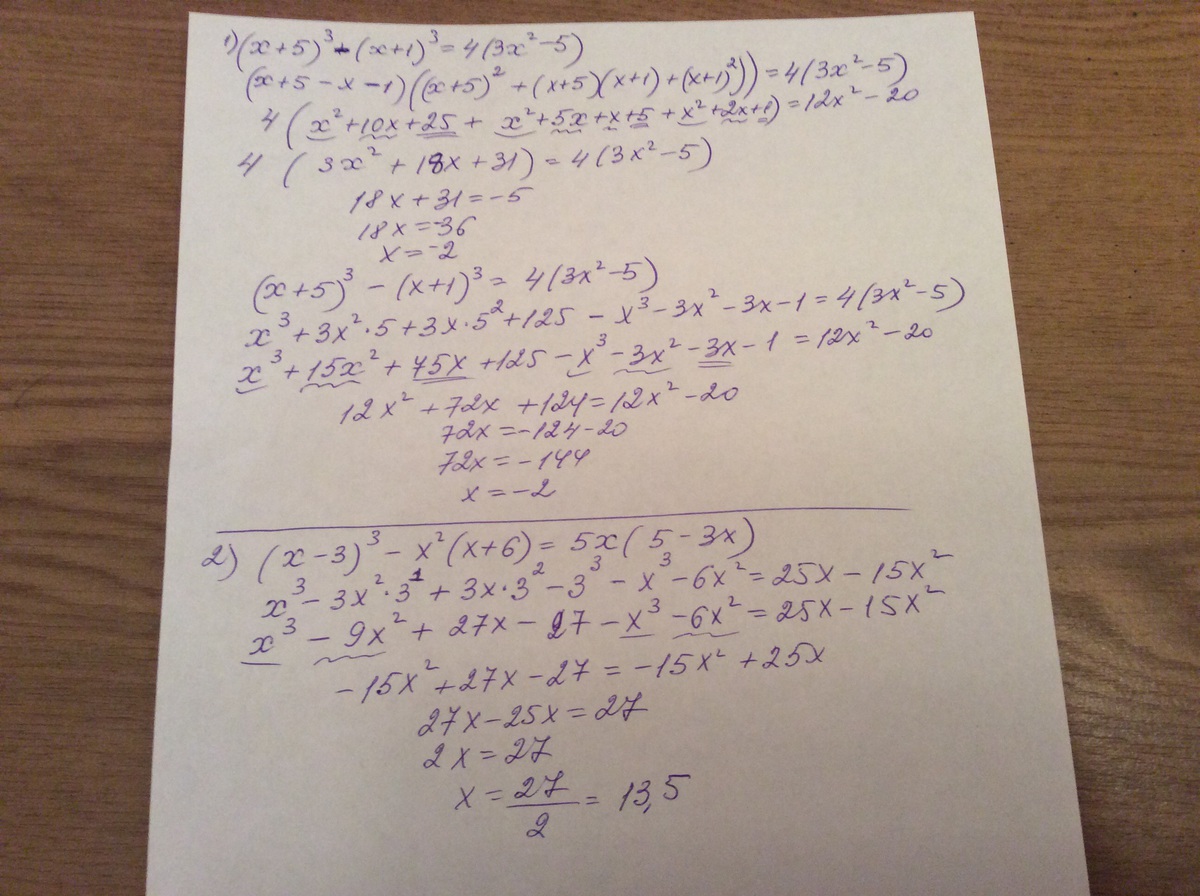 1) (x+5)³-(x+1)³=4(3x²-5)
(x+5-x-1)((x+5)²+(x+5)(x+1)+(x+1)²))=4(3x²-5)
4(x²+10x+25+x²+5x+x+5+x²+2x+1)=12x²-20
4(3x²+18x+31)=4(3x²-5)
18x+31=-5
18x=-36
x=-2
(x+5)³-(x+1)³=4(3x²-5)
x³+3x²·5+3x·5²+125-x³-3x²-3x-1=4(3x²-5)
x³+15x²+75x+125-x³-3x²-3x-1=12x²-20
12x²+72x+124=12x²-20
72x=-124-20
72x=-144
x=-2
2) (x-3)³-x²(x+6)=5x(5-3x)
x³-3x²·3¹+3x·3²-3³-x³-6x²=25x-15x²
x³-9x²+27x-27-x³-6x²=25x-15x²
-15x²+27x-27=-15x²+25x
27x-25x=27
2x=27
x=27/2=13,5